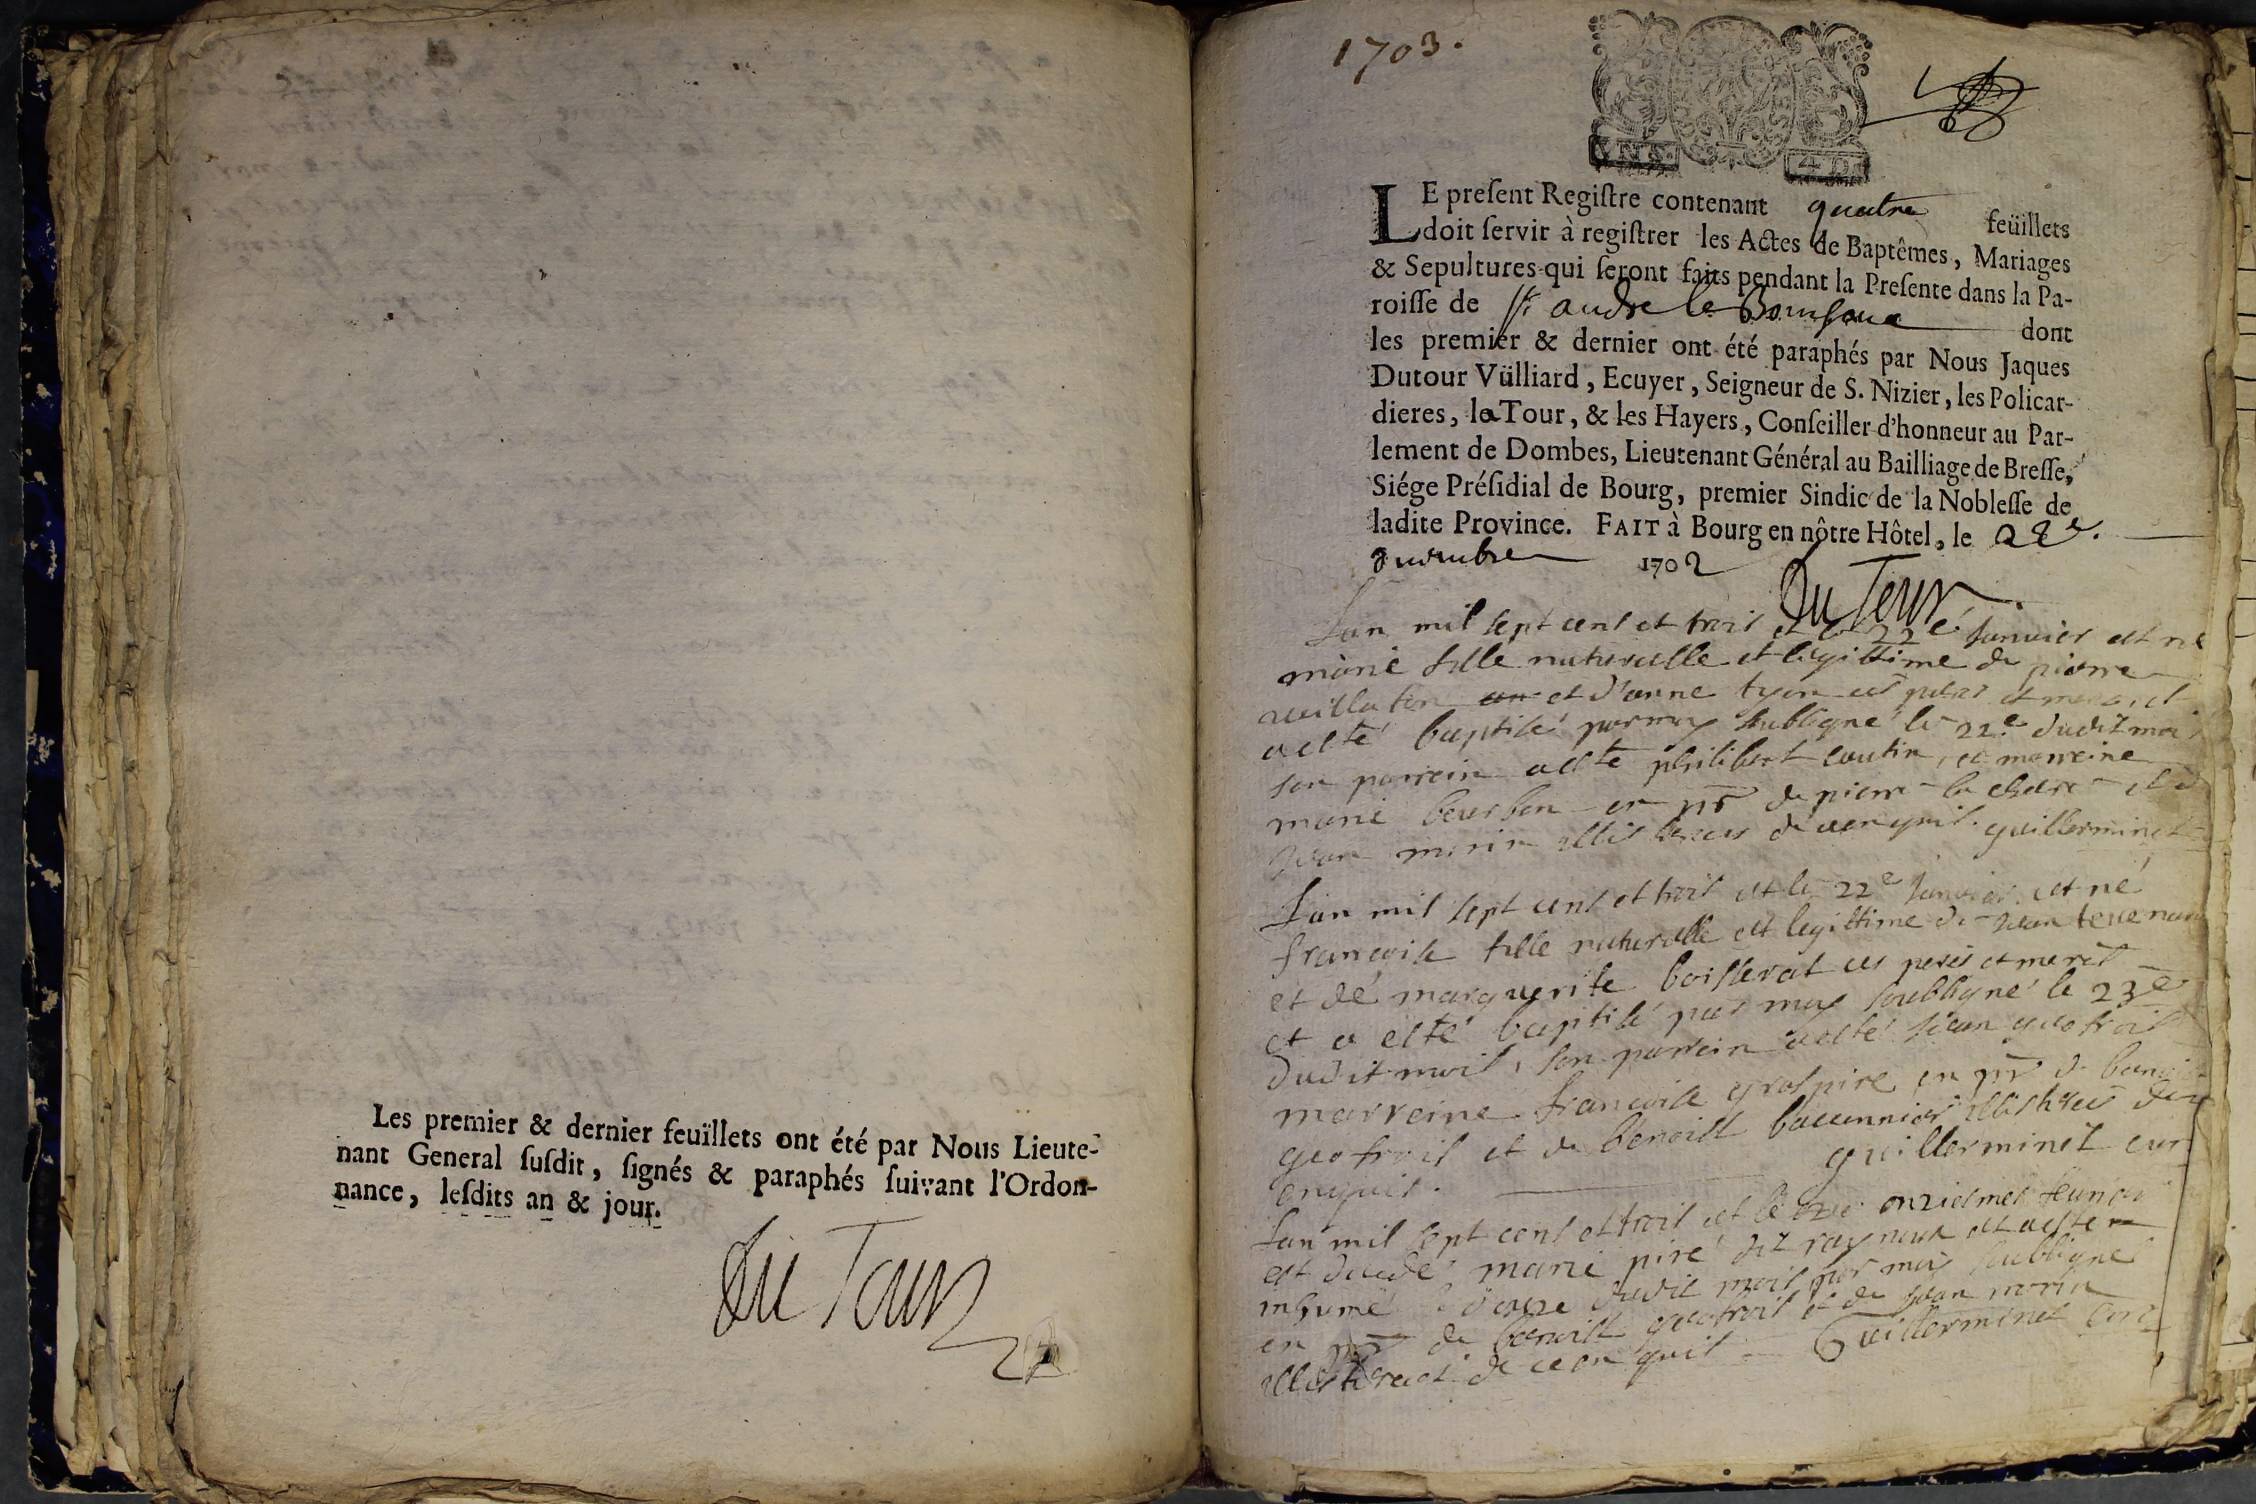 Les premier & dernier feuïllets ont été par Nous Lieute-
nant General ſuſdit, ſignés & paraphés ſuivant l'Ordon-
nance, leſdits an & jour.
Du Tour
1703.
LE preſent Regiſtre contenant quatre feüillets
doit ſervir à regiſtrer les Actes de Baptêmes, Mariages
& Sepultures qui ſeront faits pendant la Preſente dans la Pa-
roiſſe de St andre le Bouchoux dont
les premier & dernier ont été paraphés par Nous Jaques
Dutour Vülliard, Ecuyer, Seigneur de S. Nizier, les Policar-
dieres, la Tour, & les Hayers, Conſeiller d'honneur au Par-
lement de Dombes, Lieutenant Général au Bailliage de Breſſe,
Siége Préſidial de Bourg, premier Sindic de la Nobleſſe de
ladite Province. FAIT à Bourg en nôtre Hôtel, le
1702
Du Tour
Lan mil sept cens et trois et le 22e Janvier est né
marie fille naturelle et legittime de pierre
et d'anne tyon ces peres et meres, et
a esté baptisé par moy soubsigné le 22e dudit mois
son parrein a esté philibert coutin, et marreine
marie bourbon en pñs de pierre la chare et de
Jean morin illis teres de ce enquis. guillerminet
Lan mil sept cens et trois et le 22e Janvier est né
francoise fille naturelle et legittime de Jean tevenard
et de marguerite boisserat ces peres et meres
et a esté baptisé par moy soubsigné le 23e
dudit mois, son parrein a esté Jean geofrois
marreine francoise grospire en pñs de benoist
geofrois et de benoist buconnier illisteres de ce
enquis. guillerminet cur
Lan mil sept cens et trois et le onziesmes feuvrier
est decedé marie piré dit raynaux et a esté
inhumé le douze dudit mois par moy soubsigné
en pñs de benoist geofrois et de Jean morin
illisteres de ce enquis Guillerminet curé